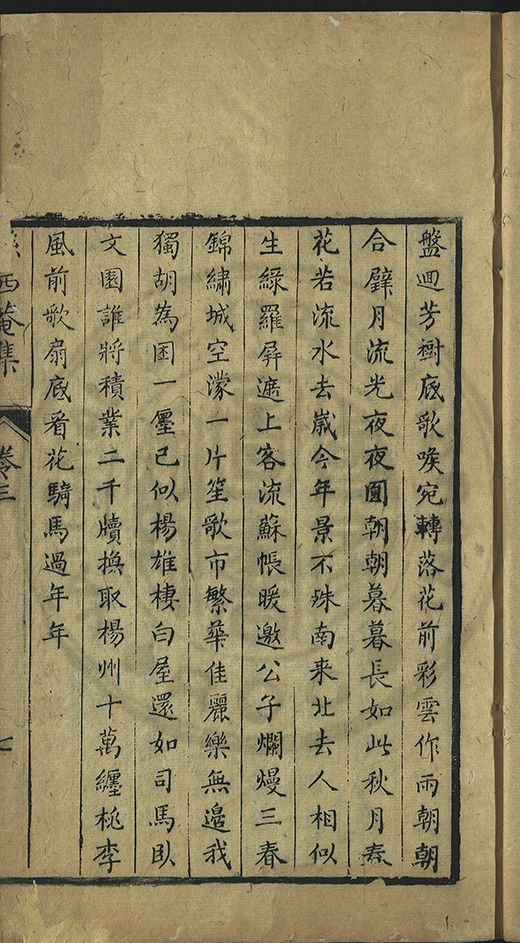 盤迴芳樹底歌喉宛轉落花前彩雲作雨朝朝
合璧月流光夜夜圓朝朝暮暮長如此秋月春
花若流水去歲今年景不殊南来北去人相似
生緑羅屏遮上客流蘇帳暖邀公子爛熳三春
錦繡城空濛一片笙歌市繁華佳麗樂無邊我
獨胡為困一廛已似楊雄棲白屋還如司馬臥
文園誰將積業二千牘換取楊州十萬纏桃李
風前歌扇底看花騎馬過年年
西菴集
卷三
七